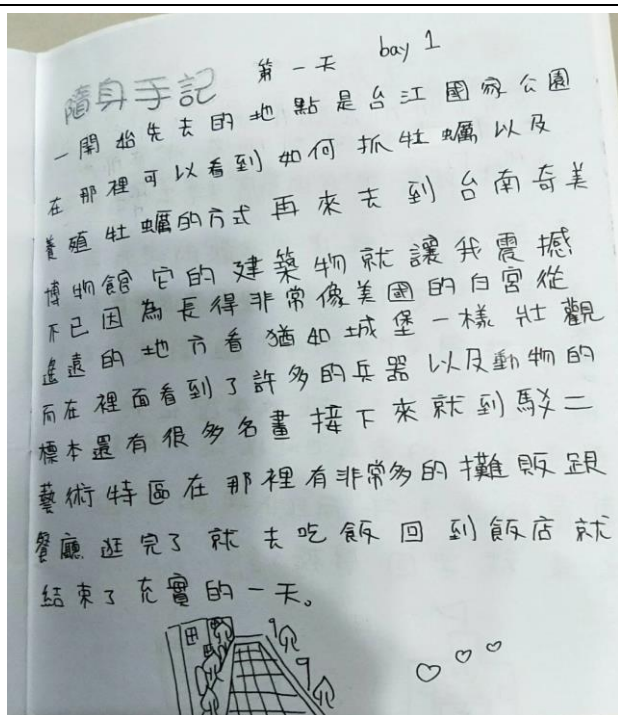 隨身手記 第一天 bay 1
一開始先去的地點是台江國家公園
在那裡可以看到如何抓牡蠣以及
養殖牡蠣的方式再來去到台南奇美
博物館它的建築物就讓我震撼
不已因為長得非常像美國的白宮從
遙遠的地方看猶如城堡一樣壯觀
而在裡面看到了許多的兵器以及動物的
標本還有很多名畫接下來就到駁二
藝術特區在那裡有非常多的攤販跟
餐廳逛完了就去吃飯回到飯店就
結束了充實的一天。